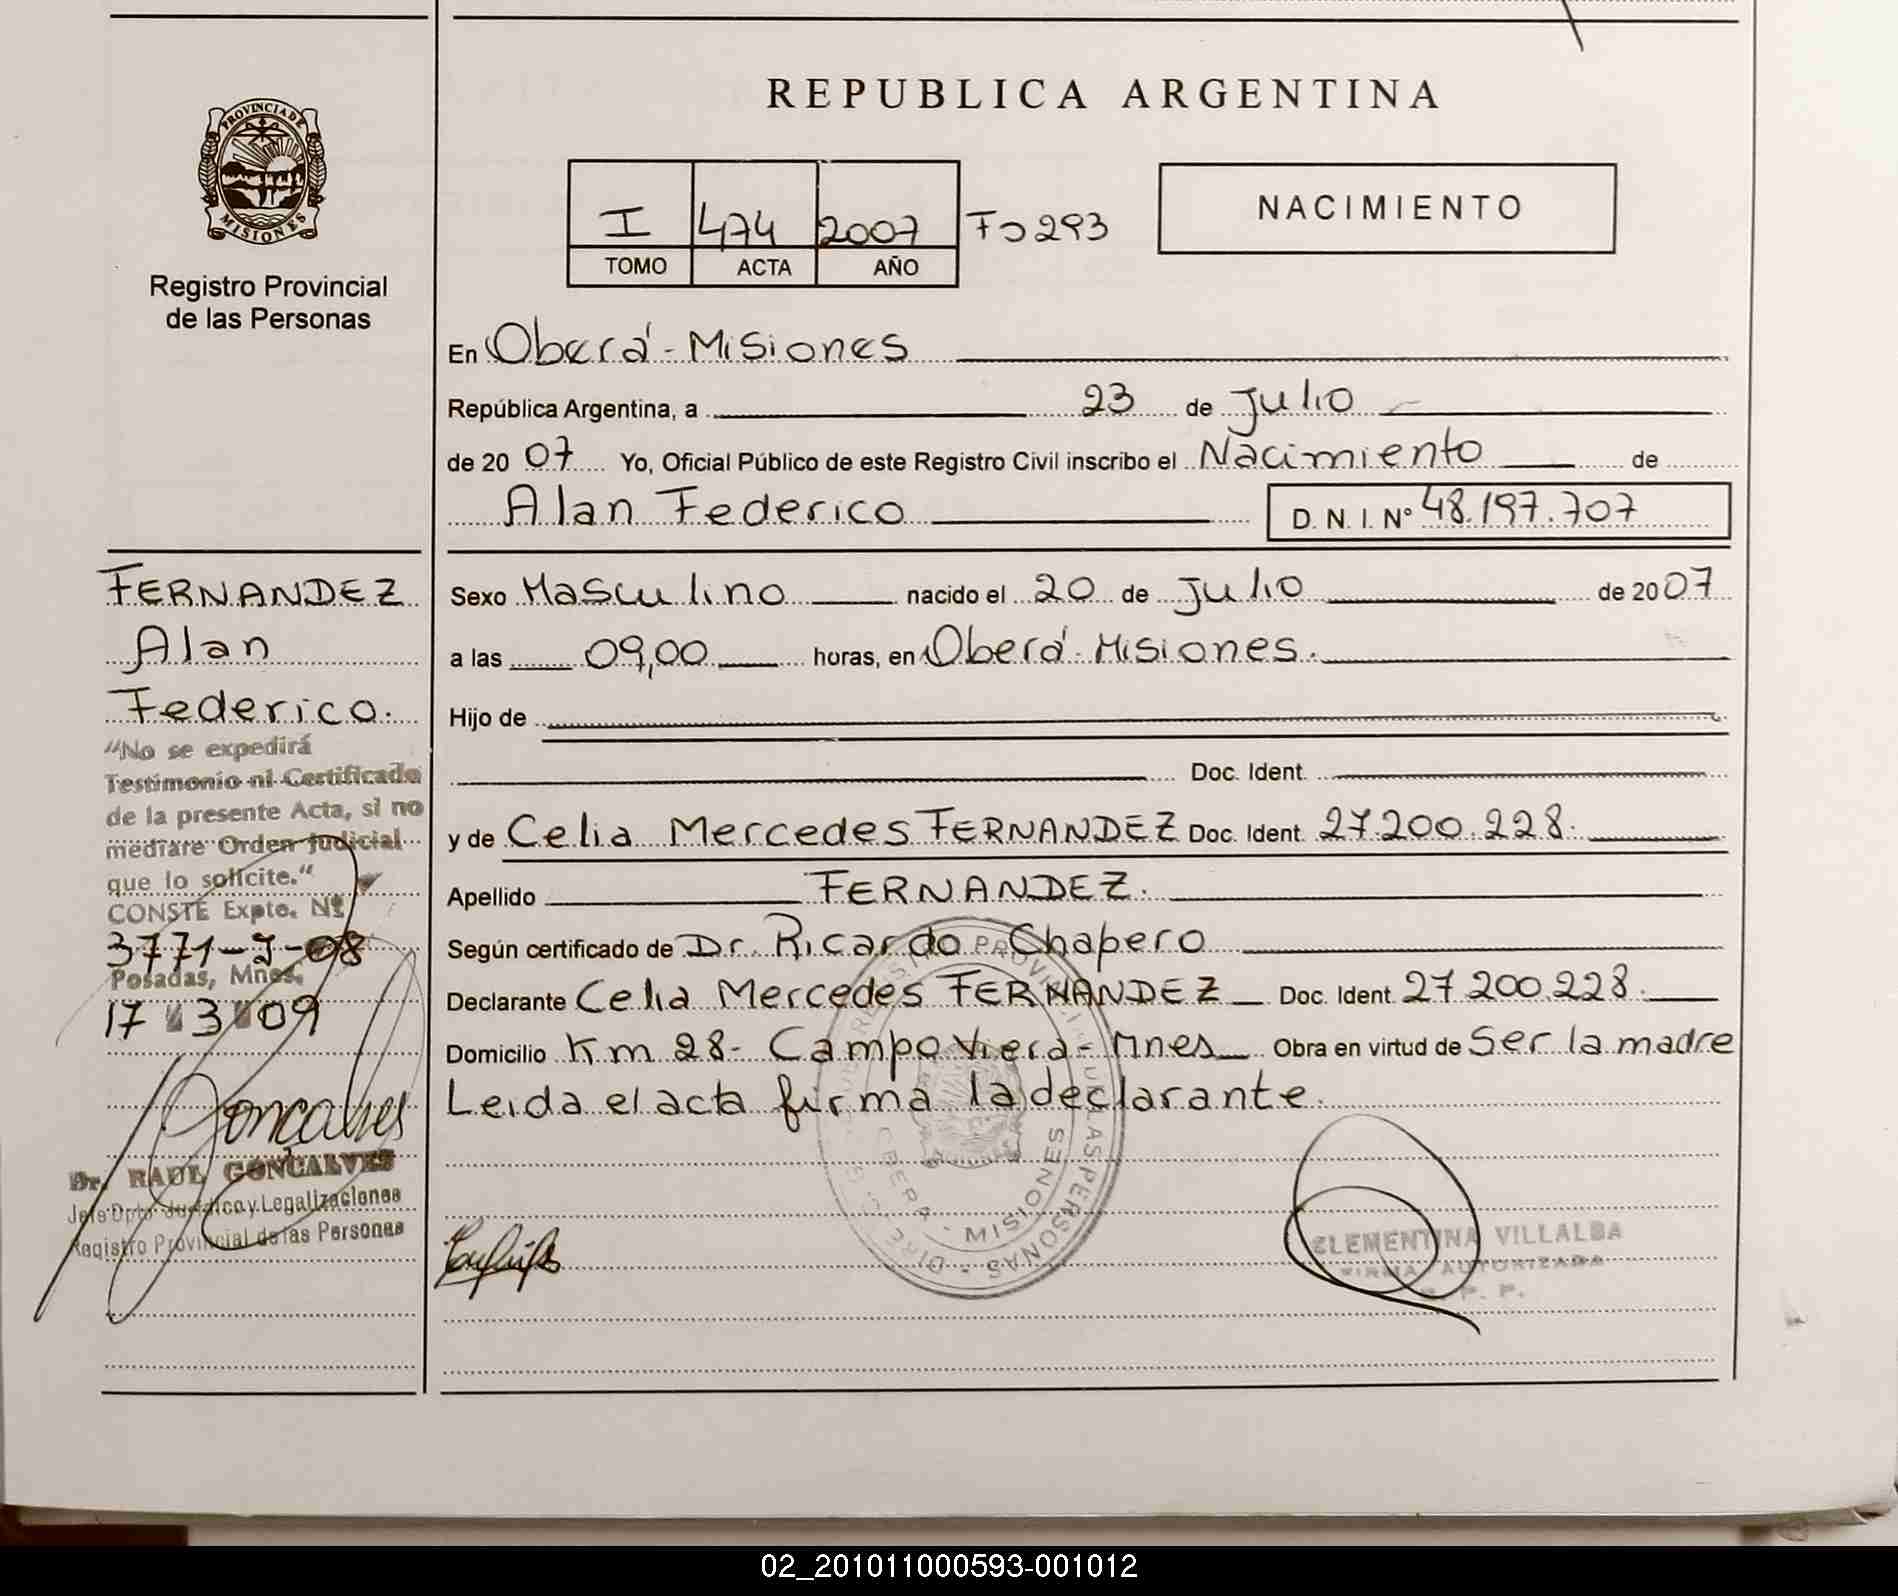 REPUBLICA ARGENTINA
PROVINCIA DE MISIONES
Registro Provincial
de las Personas
I 474 2007 Fo 293
TOMO ACTA AÑO
NACIMIENTO
En Oberá - Misiones
República Argentina, a 23 de Julio
de 20 07 Yo, Oficial Público de este Registro Civil inscribo el Nacimiento de
Alan Federico D. N. I. N° 48.197.707
Sexo Masculino nacido el 20 de Julio de 20 07
a las 09,00 horas, en Oberá - Misiones.
Hijo de
Doc. Ident.
y de Celia Mercedes FERNANDEZ Doc. Ident. 27.200.228.
Apellido FERNANDEZ.
Según certificado de Dr. Ricardo Chapero
Declarante Celia Mercedes FERNANDEZ Doc. Ident. 27 200.228.
Domicilio Km 28 - Campo Viera - Mnes Obra en virtud de Ser la madre
Leida el acta firma la declarante.
FERNANDEZ
Alan
Federico.
"No se expedirá
Testimonio ni Certificado
de la presente Acta, si no
mediare Orden Judicial
que lo solicite."
CONSTE Expte. Nº
3771-J-08
Posadas, Mnes.
17 3 09
Goncalves
Dr. RAUL GONCALVES
Jefe Dpto Jurídico y Legalizaciones
Registro Provincial de las Personas
MISIONES
CLEMENTINA VILLALBA
FIRMA AUTORIZADA
R. P. P.
02_201011000593-001012